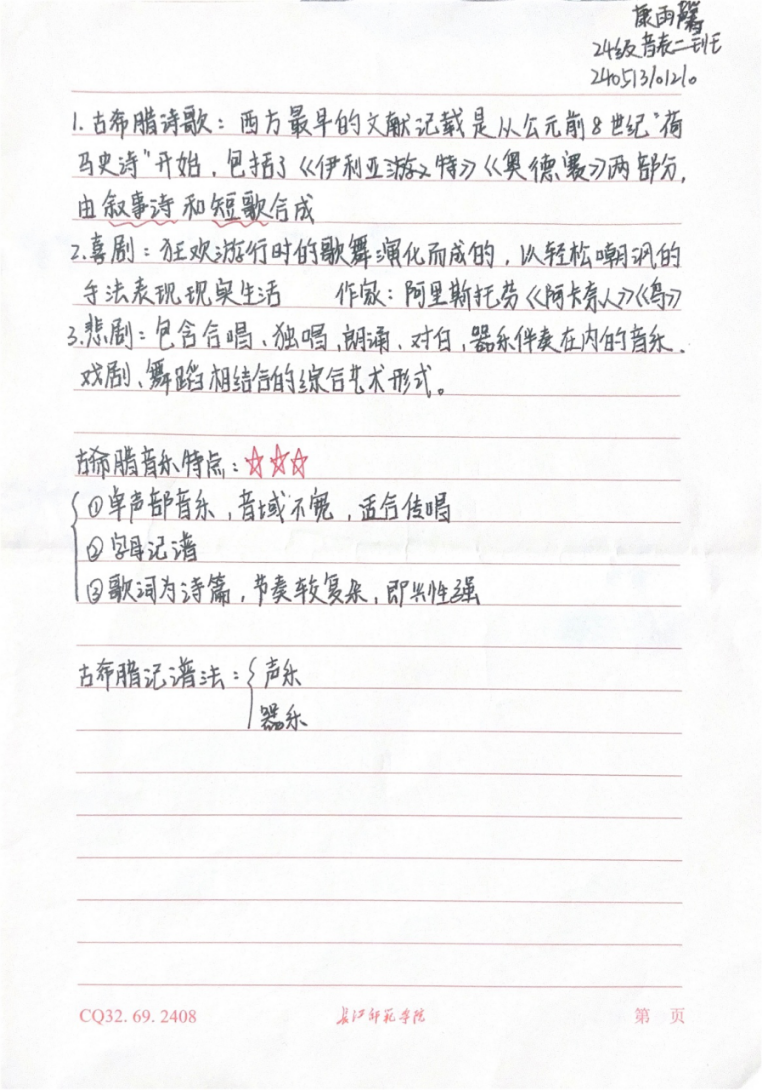 康雨馨
24级音表二班
240513101210
1.古希腊诗歌：西方最早的文献记载是从公元前8世纪“荷
马史诗”开始，包括了《伊利亚游之特》《奥德赛》两部分，
由叙事诗和短歌合成
2.喜剧：狂欢游行时的歌舞演化而成的，以轻松嘲讽的
手法表现现实生活 作家：阿里斯托芬《阿卡奈人》《鸟》
3.悲剧：包含合唱、独唱、朗诵、对白，器乐伴奏在内的音乐.
戏剧、舞蹈相结合的综合艺术形式。
古希腊音乐特点：☆☆☆
①单声部音乐，音域不宽，适合传唱
②字母记谱
③歌词为诗篇，节奏较复杂，即兴性强
古希腊记谱法：{声乐
器乐
CQ32.69.2408 长江师范学院 第 页